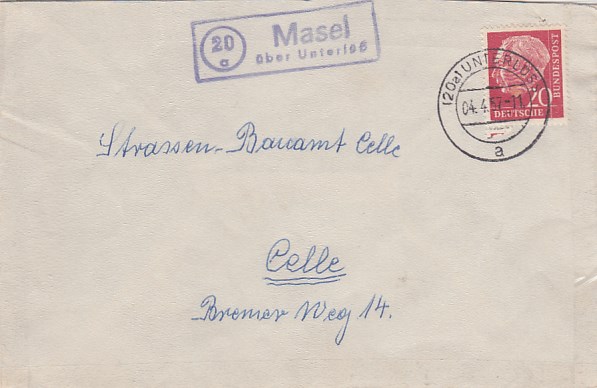 20
a
Masel
über Unterlüß
(20a) UNTERLÜSS
04.4.57-11
a
DEUTSCHE
BUNDESPOST
20
Strassen-Bauamt Celle
Celle
Bremer Weg 14.